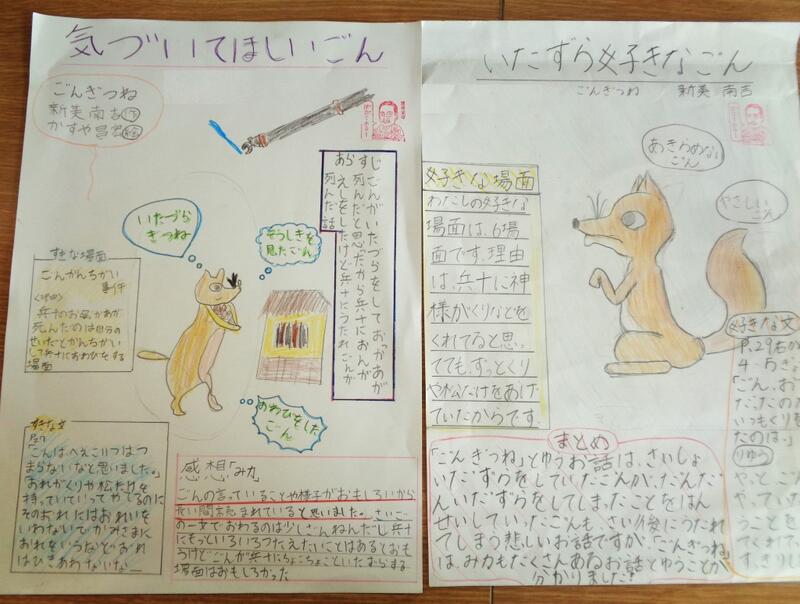 気づいてほしいごん
ごんぎつね
新美南吉作
かすや昌宏絵
あらすじ
ごんがいたづらをしておっかあが
死んだと思ったから兵十におんが
えしをしたけど兵十にうたれごんが
死んだ話
いたづら
ぎつね
そうしきを
見たごん
おわびをした
ごん
すきな場面
ごんかんちがい
事件
兵十のお母がが
死んだのは自分の
せいだとかんちがい
して兵十におわびをする
場面
すきな文
「こんはへえこいつはつ
まらないなと思いました。」
おれがくりや松たけを
持っていってやしてるのに
そのおれにはおれいを
いわないでかみさまに
おれをいうなどおれ
はひきあわないなー
感想
ごんの言っていることや様子がおもしろいから
の一文でおわるのは少しざんねんだし兵十
にもっといろいろつたえたいことはあるとおも
うけどごんが兵十にちょこちょこといたずらする
場面はおもしろかった
いたずら好きなごん
ごんぎつね 新美南吉
あきらめない
ごん
やさしい
ごん
好きな場面
わたしの好きな
場面は、6場
面です。理由
は、兵十に神
様がくりなどを
くれてると思っ
ててもずっとくり
や松たけをあげ
ていたからです。
好きな文
P.29右か
4、5ぎょ
「ごん、お
だ、たのだ
いつもくりを
たのは。」
りゆう
やっとごん
やってい
うことを
てくれて
すっきりし
まとめ
「ごんぎつね」とゆうお話は、さいしょ
いたずらをしていたごんが、だんだ
ん、いたずらをしてしまったことをはん
せいしていったごんも、さい後にうたれ
てしまう悲しいお話ですが、「ごんぎつね」
は、みカもたくさんあるお話とゆうことが
分かりました！